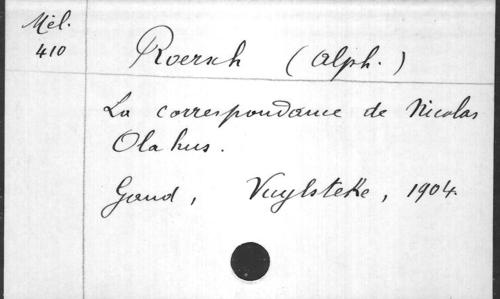 Mél.
410
Roersch (Alph.)
La correspondance de Nicolas
Olahus.
Gand, Vuylsteke, 1904.